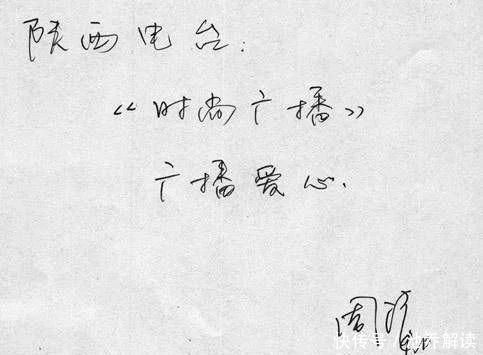 陕西电台:
《时尚广播》
广播爱心.
周
快传号/
解读